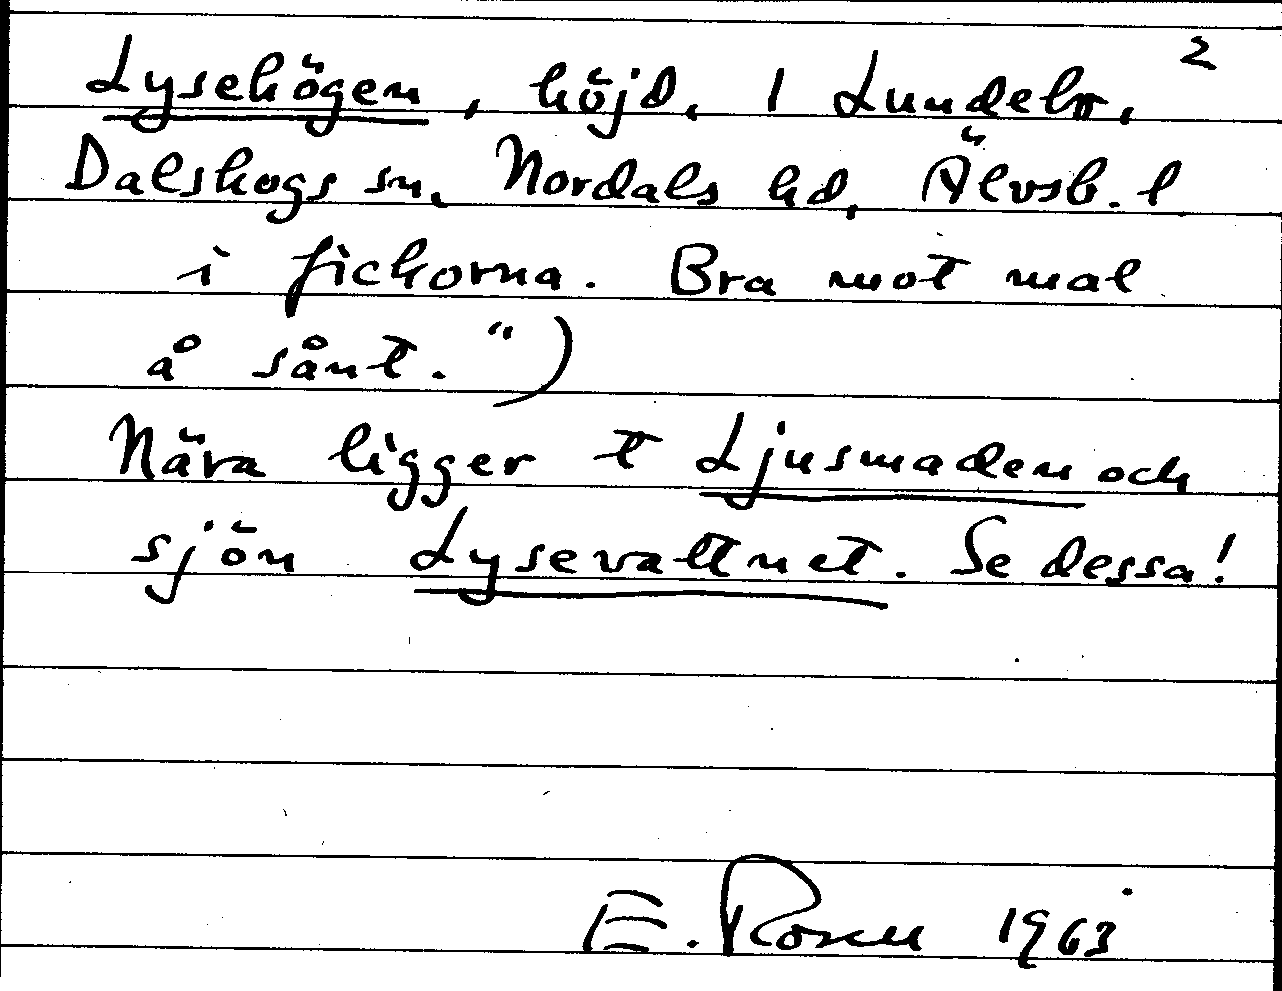 2
Lysehögen, höjd, 1 Lundebr,
Dalskogs sn, Nordals hd, Älvsb. l
i fickorna. Bra mot mal
å sånt.")
Nära ligger t Ljusmaden och
sjön Lysevattnet. Se dessa!
E. Rosell 1963